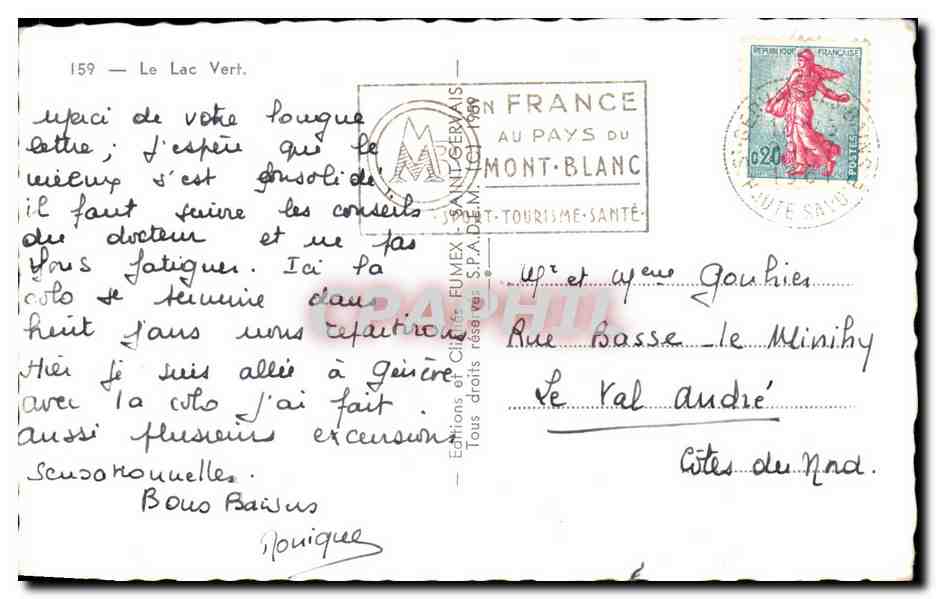 159 — Le Lac Vert.
Merci de votre longue
lettre, j'espère que le
mieux s'est consolidé
il faut suivre les conseils
du docteur et ne pas
vous fatiguer. Ici la
colo se termine dans
huit jours nous repartirons
Hier je suis allée à Genève
avec la colo j'ai fait
aussi plusieurs excursions
sensationnelles.
Bons Baisers
Monique
Editions et Clichés FUMEX - SAINT-GERVAIS
Tous droits réservés S.P.A.D.E.M. (C) 1959
EN FRANCE
AU PAYS DU
MONT-BLANC
SPORT - TOURISME - SANTÉ
REPUBLIQUE FRANÇAISE
0,20
POSTES
HAUTE SAVOIE
Mr et Mme Gouhier
Rue Basse - le Minihy
Le Val André
Côtes du Nord.
CPAPHIL